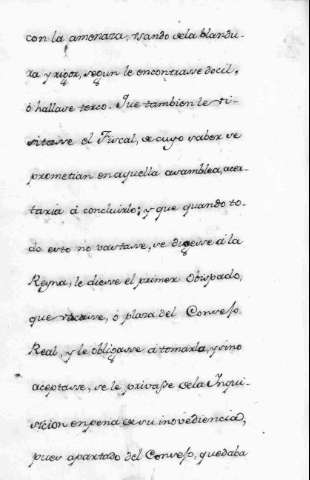 con la amenaza, usando de la blandu-
ra y rigor, segun le encontrasse docil,
ò hallase terco. Que tambien le vi-
sitasse el Fiscal, de cuyo saber se
prometian en aquella asamblea, acer-
taria à concluirlo; y que quando to-
do esto no vastasse, se digesse à la
Reyna, le diesse el primer Obispado,
que vacase, ò plaza del Consejo
Real, y le obligasse à tomarla, y sino
aceptasse, se le privasse de la Ynqui-
sicion en pena de su inovediencia,
pues apartado del Consejo, quedaba